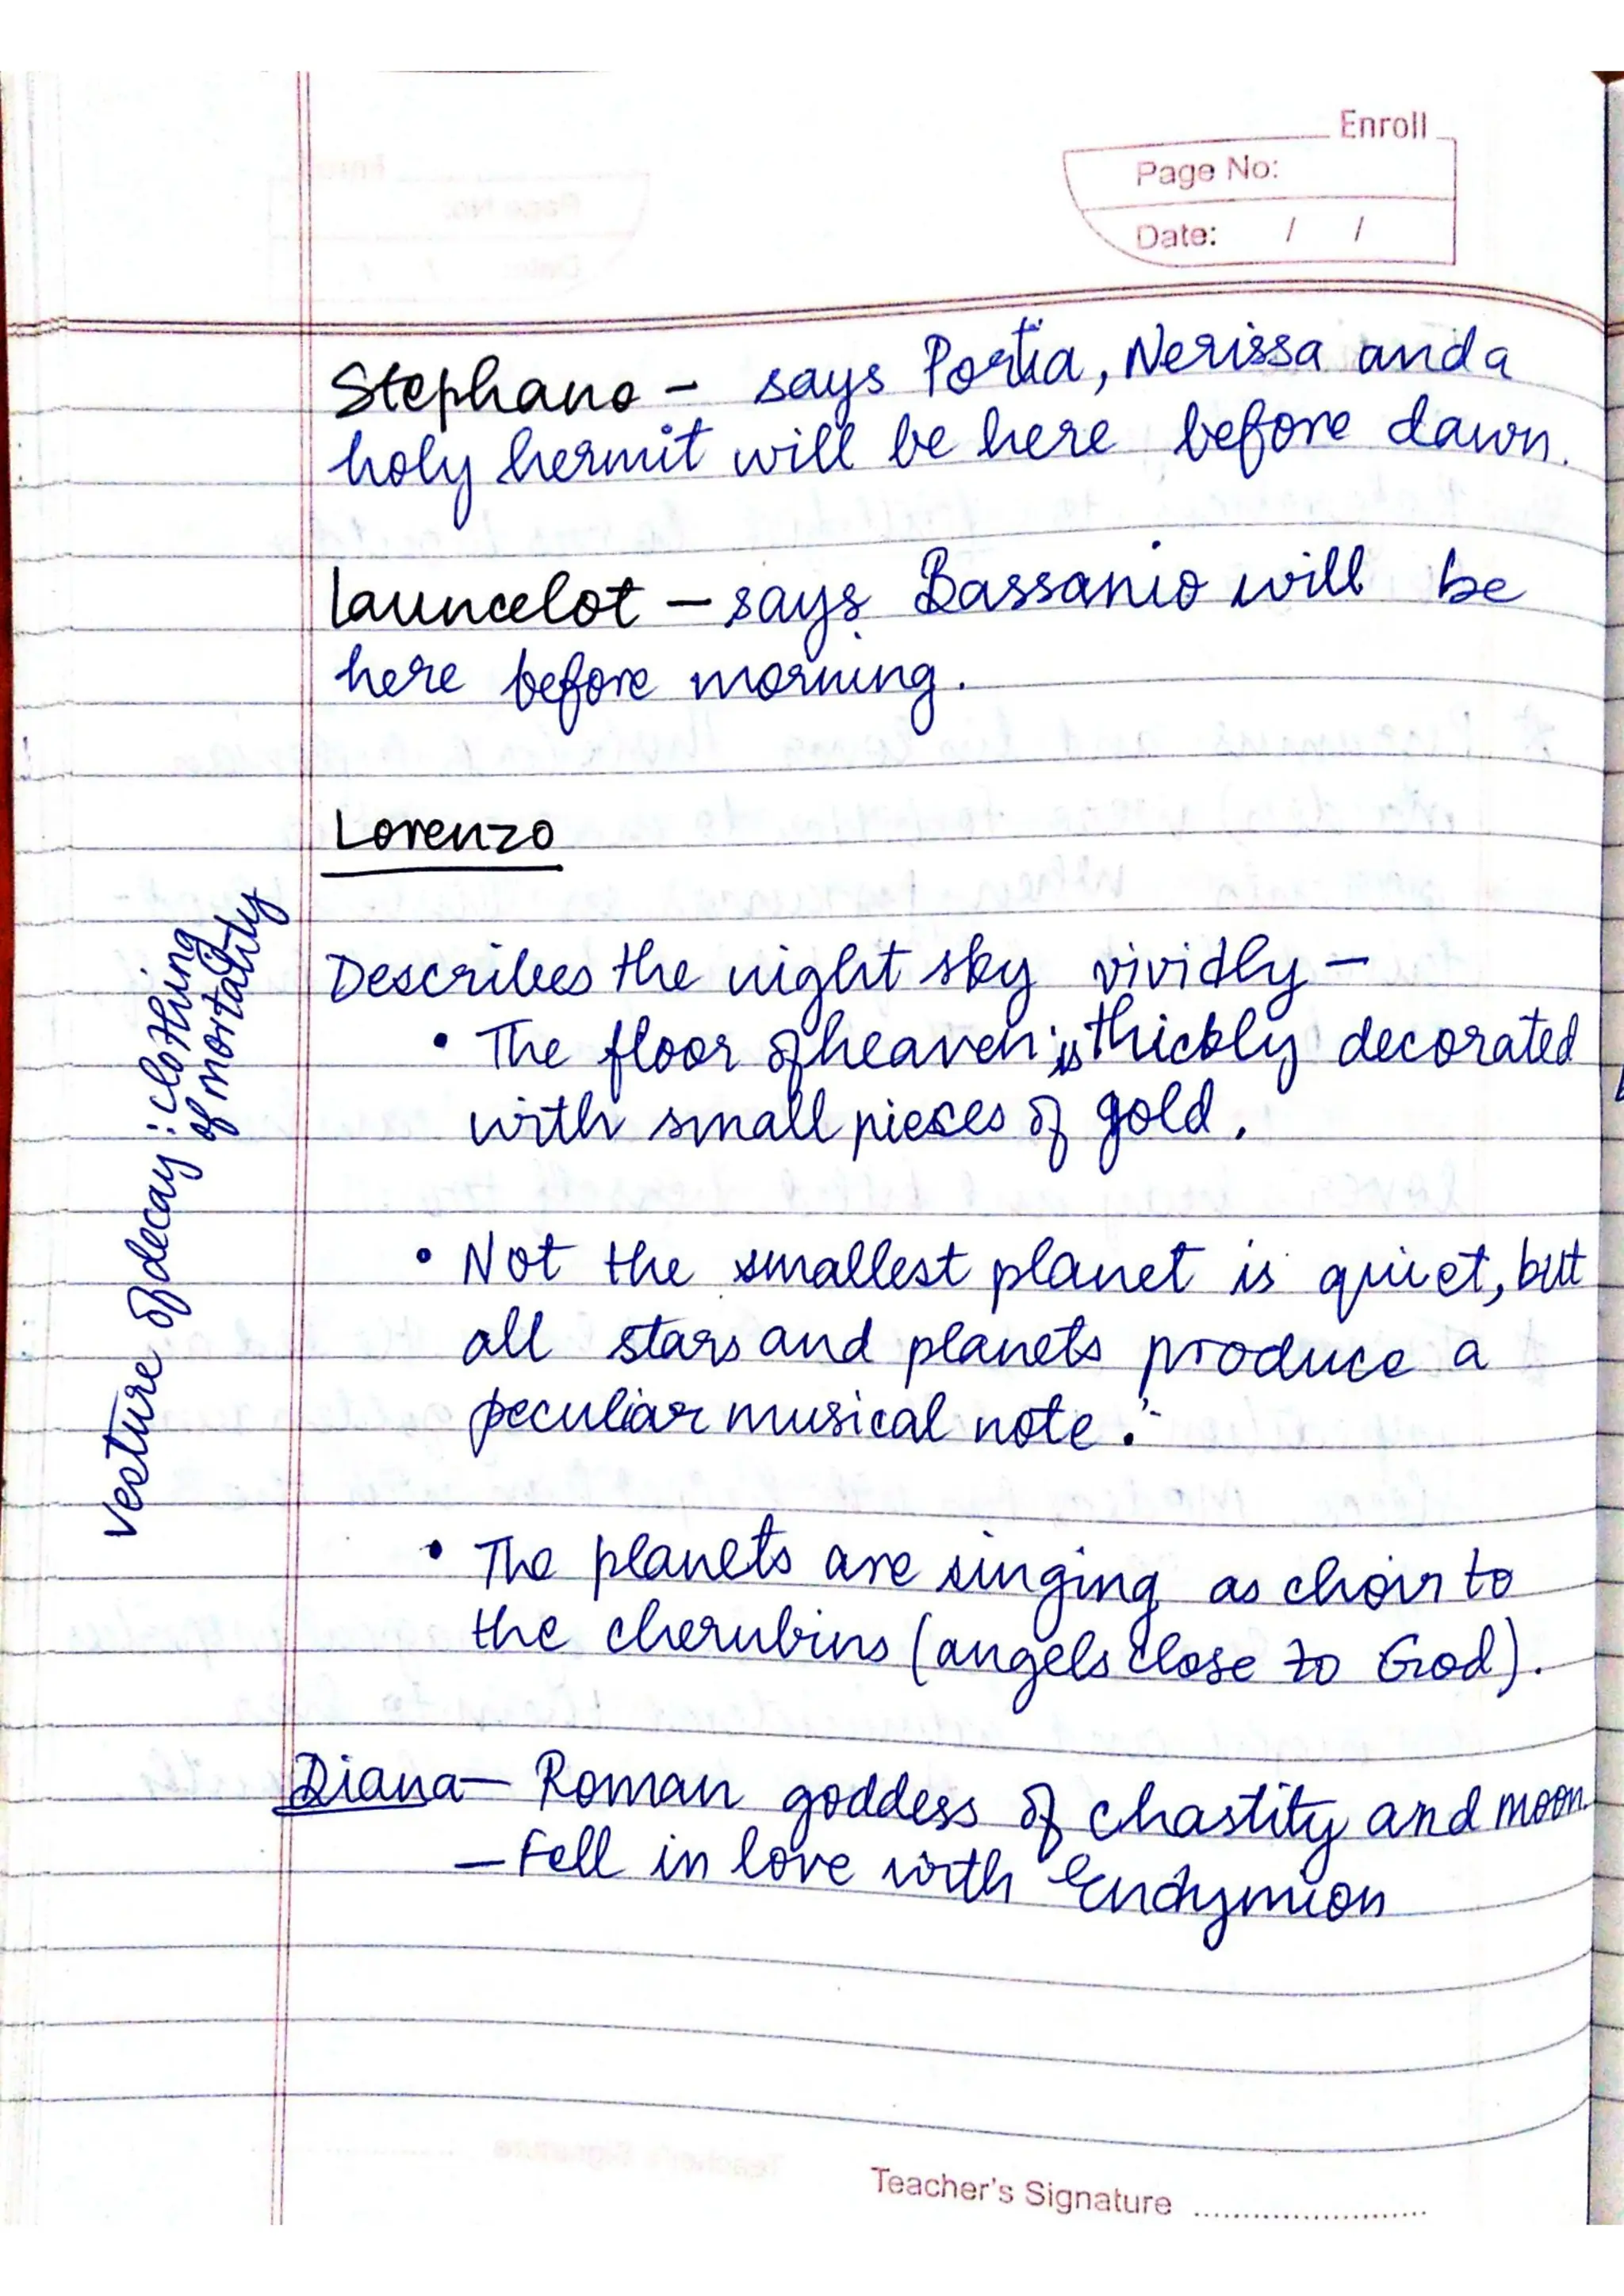 Enroll
Page No:
Date: / /
Stephano - says Portia, Nerissa and a
holy hermit will be here before dawn.
launcelot - says Bassanio will be
here before morning.
Lorenzo
Describes the night sky vividly -
• The floor of heaven is thickly decorated
with small pieces of gold.
• Not the smallest planet is quiet, but
all stars and planets produce a
peculiar musical note.
• The planets are singing as choir to
the cherubins (angels close to God).
Diana - Roman goddess of chastity and moon.
- Fell in love with Endymion
Vesture of decay : clothing
of mortality
Teacher's Signature ........................